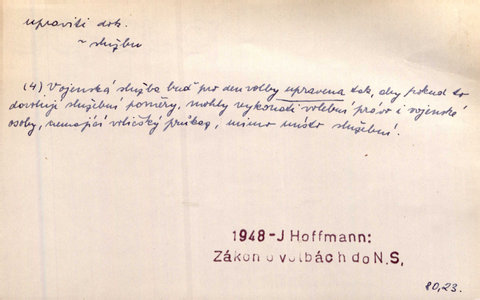 upraviti dok.
~ službu
(4) Vojenská služba buď pro den volby upravena tak, aby pokud to
dovolují služební poměry, mohly vykonati volební právo i vojenské
osoby, nemající voličský průkaz, mimo místo služební.
1948-J Hoffmann:
Zákon o volbách do N.S.
20,23.